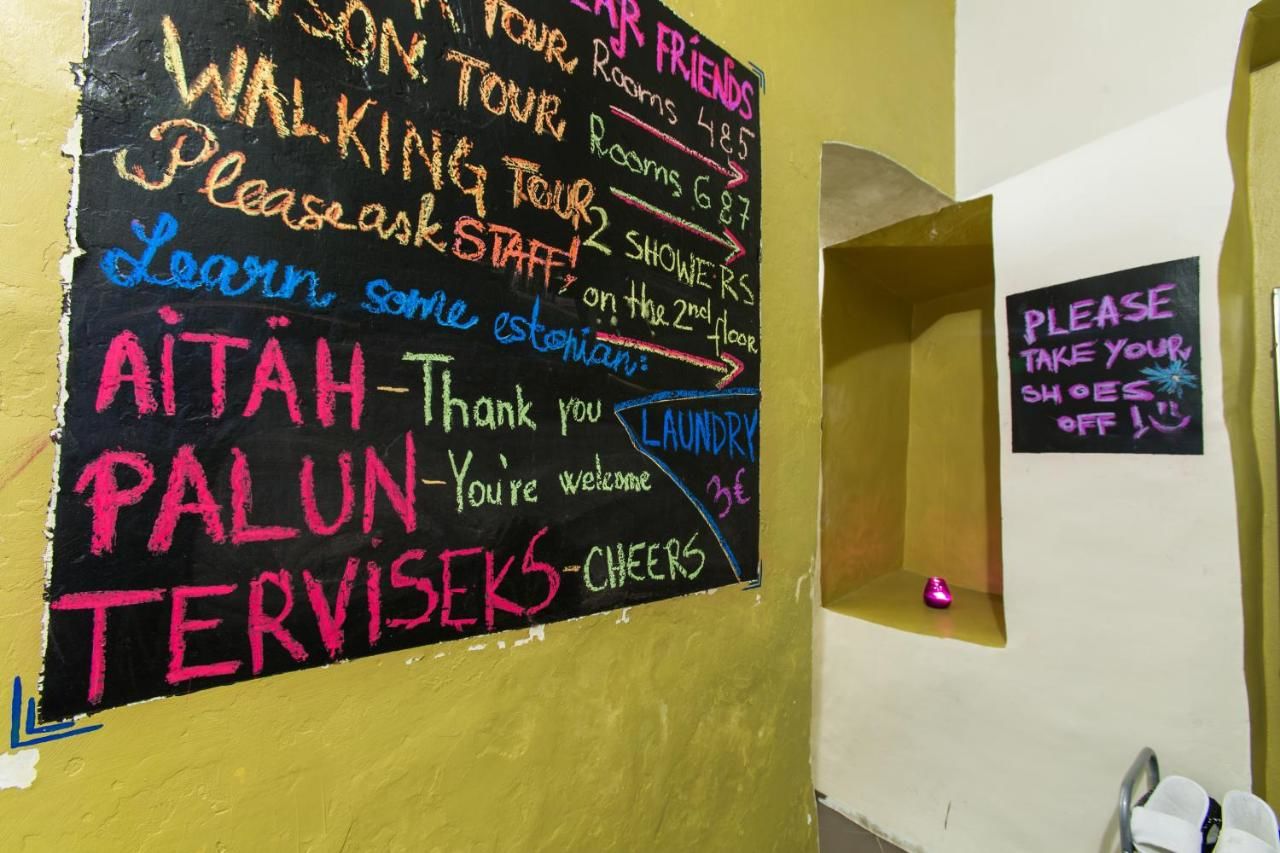 TOUR
SON TOUR
WALKING TOUR
Please ask STAFF!
Learn some estonian:
AITÄH - Thank you
PALUN - You're welcome
TERVISEKS - CHEERS
EAR FRIENDS
Rooms 4&5
Rooms 6&7
2 SHOWERS
on the 2nd floor
LAUNDRY
3€
PLEASE
TAKE YOUR
SHOES
OFF!